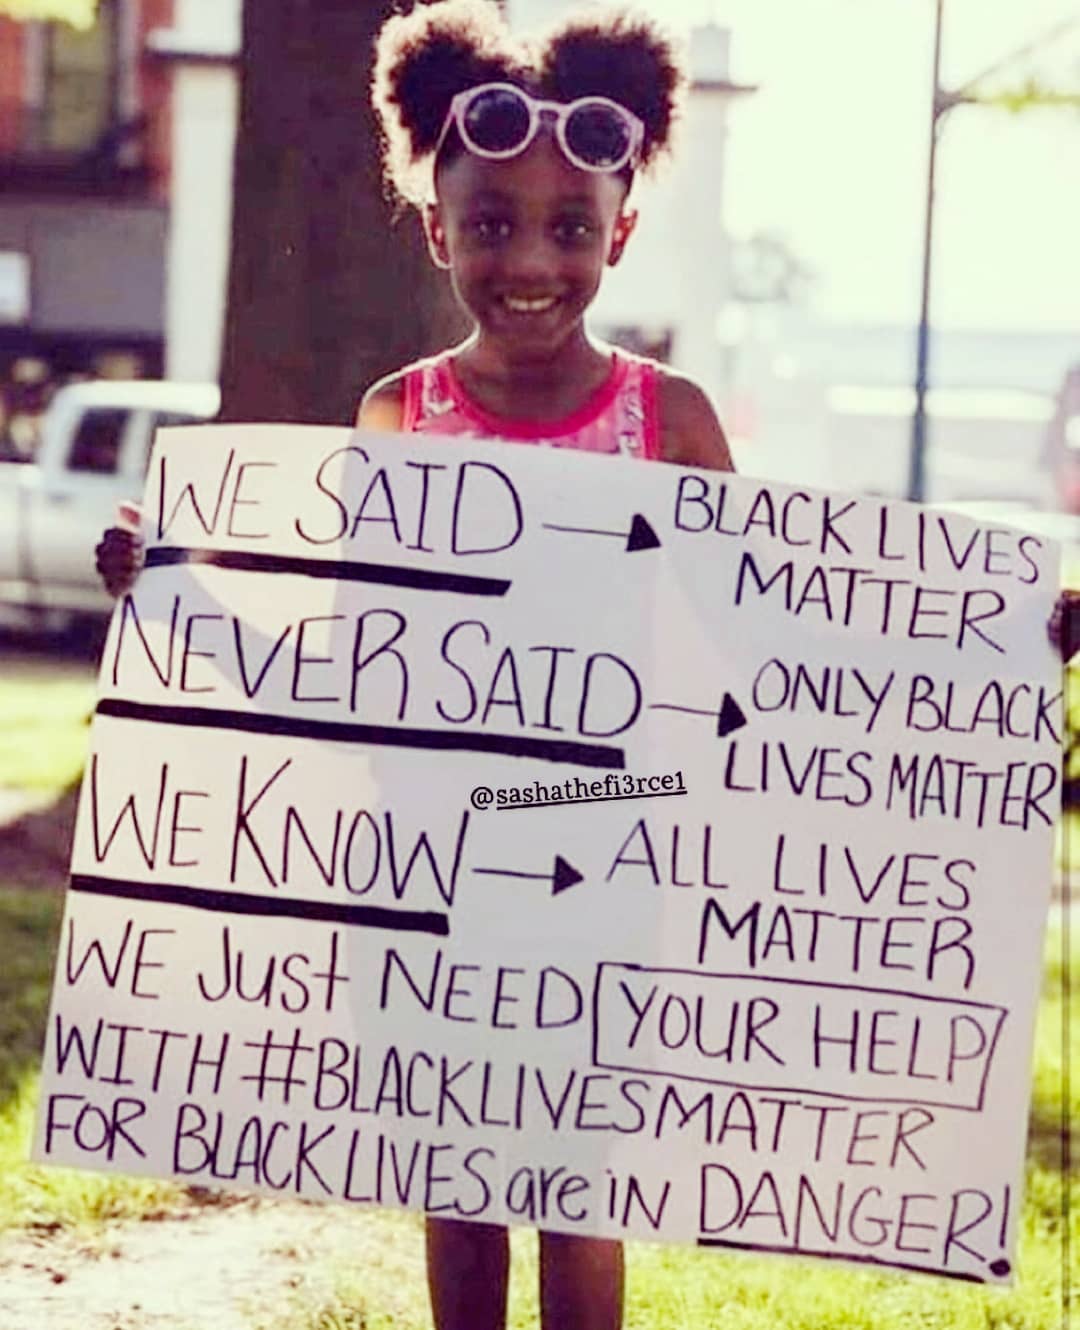 WE SAID → BLACK LIVES
MATTER
NEVER SAID → ONLY BLACK
LIVES MATTER
@sashathefi3rce1
WE KNOW → ALL LIVES
MATTER
WE JUST NEED YOUR HELP
WITH #BLACKLIVESMATTER
FOR BLACK LIVES are iN DANGER!